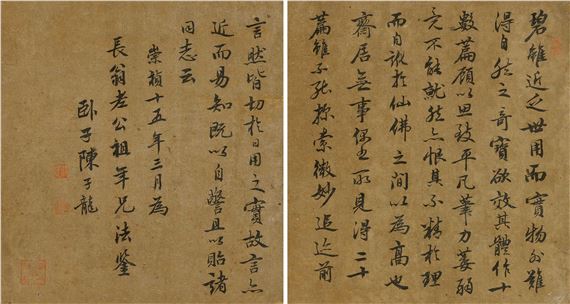 碧雖近乏世用而實物外難
得自然之奇寶欲效其體作十
數篇顧以思致平凡筆力萎弱
竟不能就然亦恨其不精於理
而自託於仙佛之間以為高也
齋居無事偶書所見得二十
篇雖不能探索微妙追迹前
言然皆切於日用之實故言亦
近而易知既以自警且以貽諸
同志云
崇禎十五年三月為
長翁老公祖年兄法鑒
臥子陳子龍